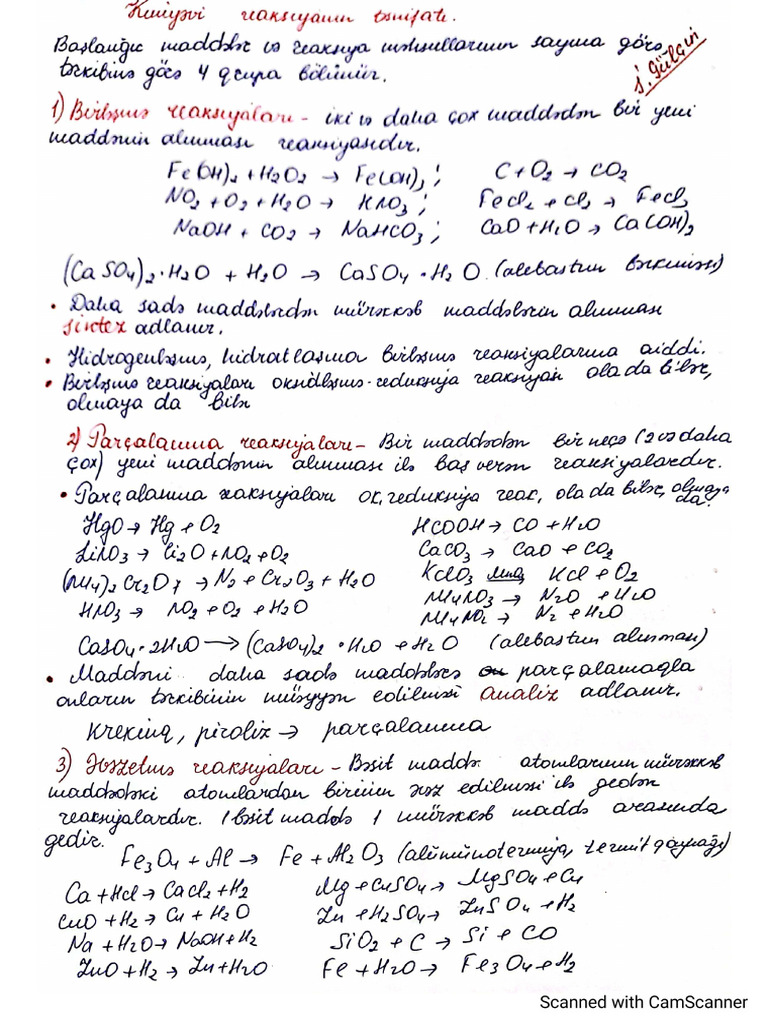 Kimyəvi reaksiyanın təsnifatı.
Başlanğıc maddələr və reaksiya məhsullarının sayına görə,
tərkibinə görə 4 qrupa bölünür.
İ. Gülçin
1) Birləşmə reaksiyaları - iki və daha çox maddədən bir yeni
maddənin alınması reaksiyasıdır.
Fe(OH)₂ + H₂O₂ → Fe(OH)₃ ; C + O₂ → CO₂
NO₂ + O₂ + H₂O → HNO₃ ; FeCl₂ + Cl₂ → FeCl₃
NaOH + CO₂ → NaHCO₃ ; CaO + H₂O → Ca(OH)₂
(CaSO₄)₂·H₂O + H₂O → CaSO₄·H₂O (alebastrın bərkiməsi)
• Daha sadə maddələrdən mürəkkəb maddələrin alınması
sintez adlanır.
• Hidrogenləşmə, hidratlaşma birləşmə reaksiyalarına aiddi.
• Birləşmə reaksiyaları oksidləşmə-reduksiya reaksiyası ola da bilər,
olmaya da bilər
2) Parçalanma reaksiyaları - Bir maddədən bir neçə (2 və daha
çox) yeni maddənin alınması ilə baş verən reaksiyalardır.
• Parçalanma reaksiyaları ok, reduksiya reak, ola da bilər, olmaya
da.
HgO → Hg + O₂ HCOOH → CO + H₂O
LiNO₃ → Li₂O + NO₂ + O₂ CaCO₃ → CaO + CO₂
(NH₄)₂Cr₂O₇ → N₂ + Cr₂O₃ + H₂O KClO₃ MnO₂→ KCl + O₂
HNO₃ → NO₂ + O₂ + H₂O NH₄NO₃ → N₂O + H₂O
NH₄NO₂ → N₂ + H₂O
CaSO₄·2H₂O → (CaSO₄)₂·H₂O + H₂O (alebastrın alınması)
• Maddəni daha sadə maddələrə parçalamaqla
onların tərkibinin müəyyən edilməsi analiz adlanır.
Krekinq, piroliz → parçalanma
3) Əvəzetmə reaksiyaları - Bəsit maddə atomlarının mürəkkəb
maddədəki atomlardan birinin əvəz edilməsi ilə gedən
reaksiyalardır. 1 bəsit maddə 1 mürəkkəb maddə arasında
gedir.
Fe₃O₄ + Al → Fe + Al₂O₃ (alüminotermiya, termit qaynağı)
Ca + HCl → CaCl₂ + H₂ Mg + CuSO₄ → MgSO₄ + Cu
CuO + H₂ → Cu + H₂O Zn + H₂SO₄ → ZnSO₄ + H₂
Na + H₂O → NaOH + H₂ SiO₂ + C → Si + CO
ZnO + H₂ → Zn + H₂O Fe + H₂O → Fe₃O₄ + H₂
Scanned with CamScanner